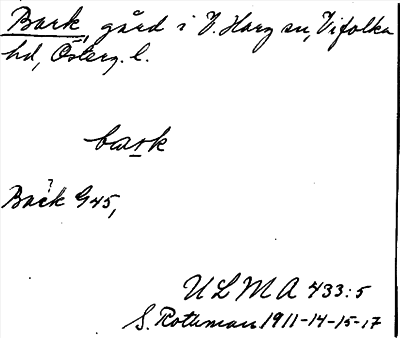 Bark, gård i V. Harg sn, Vifolka
hd, Österg. l.
bark
?
Back G45,
ULMA 433:5
S. Rothman 1911-14-15-17